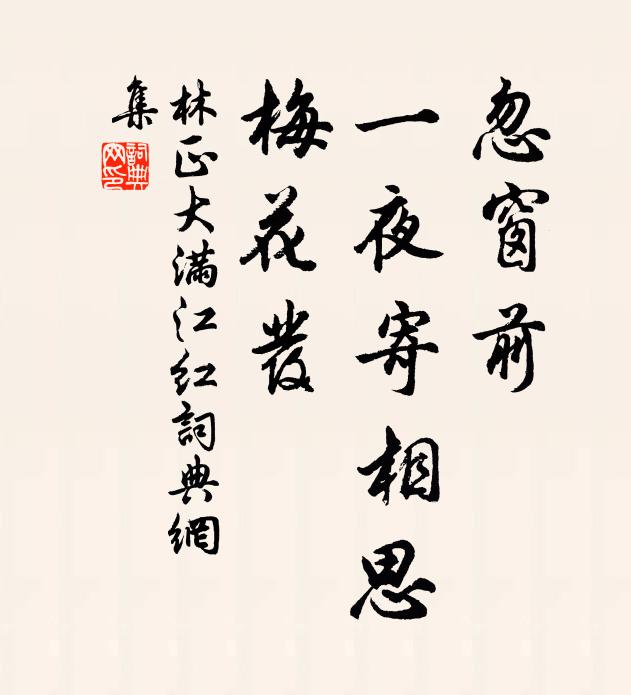 忽窗前
一夜寄相思
梅花發
林正大满江红詞典網
集
詞典
网印